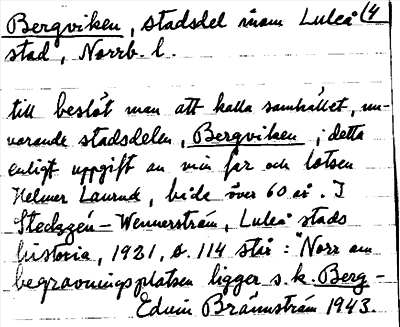 Bergviken, stadsdel inom Luleå (4
stad, Norrb. l.
till beslöt man att kalla samhället, nu-
varande stadsdelen, Bergviken, detta
enligt uppgift av min far och lotsen
Helmer Laurud, båda över 60 år. I
Steckzén-Wennerström, Luleå stads
historia, 1921, s. 114 står: "Norr om
begravningsplatsen ligger s.k. Berg-
Edvin Brännström 1943.